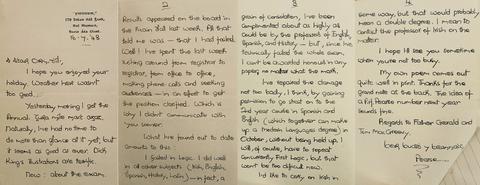 179
16-9-43
A Chara,
I hope you enjoyed your
holiday. Weather hasn't been
too good.
Yesterday morning I got the
Annual. Guim míle maith agat.
Naturally, I've had no time to
do more than glance at it yet, but
it seems as good as ever. Dick
King's illustrations are terrific.
Now: about the exam.
2
Results appeared on the board in
the Main Hall last week. All that
told me was — that I had failed.
Well! I've spent the last week
rushing around from registrar to
registrar, from office to office,
making phone calls and seeking
audiences — in an effort to get
the position clarified. Which is
why I didn't communicate with
you sooner.
What I've found out to date
amounts to this:
I failed in Logic. I did well
in all other subjects (Irish, English,
Spanish, History, Latin), — in fact, a
3
grain of consolation, I've been
complimented about as highly as
could be by the professors of English,
Spanish, and History — but, since I've
technically failed the whole exam,
I can't be awarded honours in any
papers no matter what the mark.
I've repaired the damage
not too badly, I think, by gaining
permission to go straight on to the
2nd year course in Spanish and
English (which together can make
up a Modern Languages degree) in
October, without being held up. I
will, of course, have to repeat
concurrently, First Logic, but that
won't be too difficult now.
I'd like to carry on Irish in
4
some way, but that would probably
mean a double degree. I mean to
contact the professor of Irish on the
matter.
I hope I'll see you sometime
when you're not too busy.
My own poem comes out
quite well in print. Thanks for the
grand note at the back. The idea of
a Pearse number next year
sounds fine.
Regards to Father Gerald and
Tom MacGreevy.
Pearse